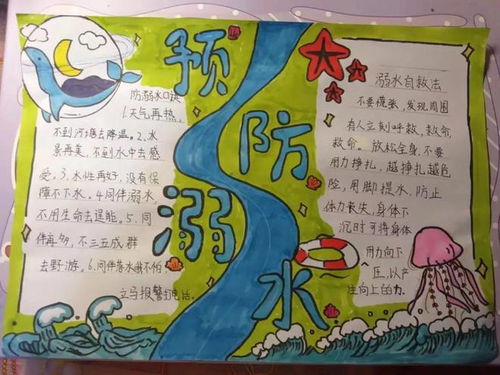 预
防
溺
水
防溺水口诀
1.天气再热,
不到河塘去降温。2.水
景再美,不到水中去感
受。3.水性再好,没有保
障不下水。4.同伴溺水
不用生命去逞能。5.同
伴再多,不三五成群
去野游。6.同伴落水我不怕
立马报警打电话。
溺水自救法
不要慌张,发现周围
有人立刻呼救,救命
救命。放松全身,不要
用力挣扎,越挣扎越危
险,用脚提水,防止
体力丧失,身体下
沉时可将身体
用力向下
压,以产
生向上的力。